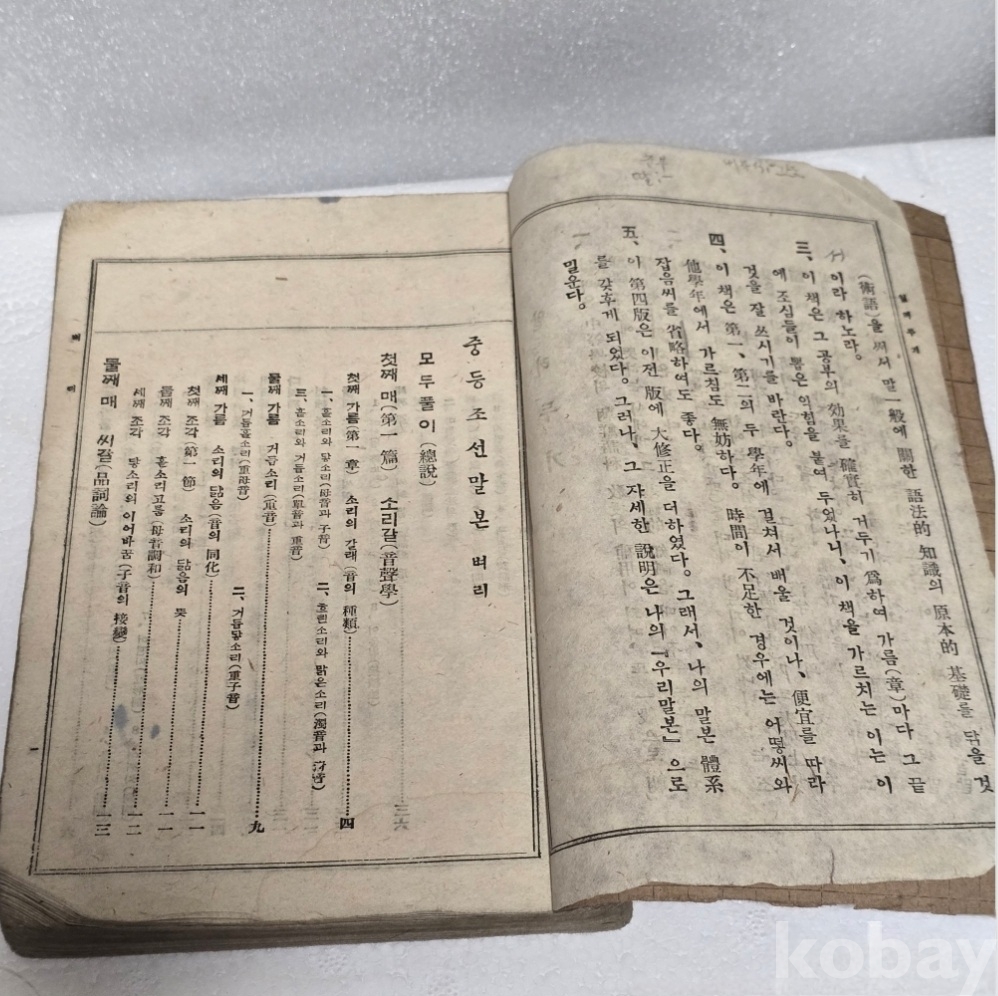 일러두기
(術語)을 써서 말 一般에 關한 語法的 知識의 原本的 基礎를 닦을 것
이라 하노라.
三、이 책은 그 공부의 効果를 確實히 거두기 爲하여 가름(章)마다 그 끝
에 조심들이 뽑은 익힘을 붙여 두었나니, 이 책을 가르치는 이는 이
것을 잘 쓰시기를 바란다.
四、이 책은 第一、第二의 두 學年에 걸쳐서 배울 것이나、便宜를 따라
他學年에서 가르침도 無妨하다。時間이 不足한 경우에는 어떵씨와
잡음씨를 省略하여도 좋다。
五、이 第四版은 이전 版에 大修正을 더하였다。그래서、나의 말본 體系
를 갖후게 되었다。그러나、그 자세한 說明은 나의『우리말본』으로
밀운다。
중등조선말본 벼리
모두풀이(總說)
첫째 매(第一篇) 소리갈(音聲學)
첫째 가름(第一章) 소리의 갈래(音의 種類)……四
一、홀소리와 닿소리(母音과 子音) 二、흐린소리와 맑은소리(濁音과 淸音)
三、홑소리와 거듭소리(單音과 重音)
둘째 가름 거듭소리(重音)……九
一、거듭홀소리(重母音) 二、거듭닿소리(重子音)
세째 가름 소리의 닮음(音의 同化)……一一
첫째 조각(第一節) 소리의 닮음의 뜻……一一
둘째 조각 홀소리고룸(母音調和)……一一
세째 조각 닿소리의 이어바꿈(子音의 接變)……一二
둘째 매 씨갈(品詞論)……一三
벼리
一
kobay